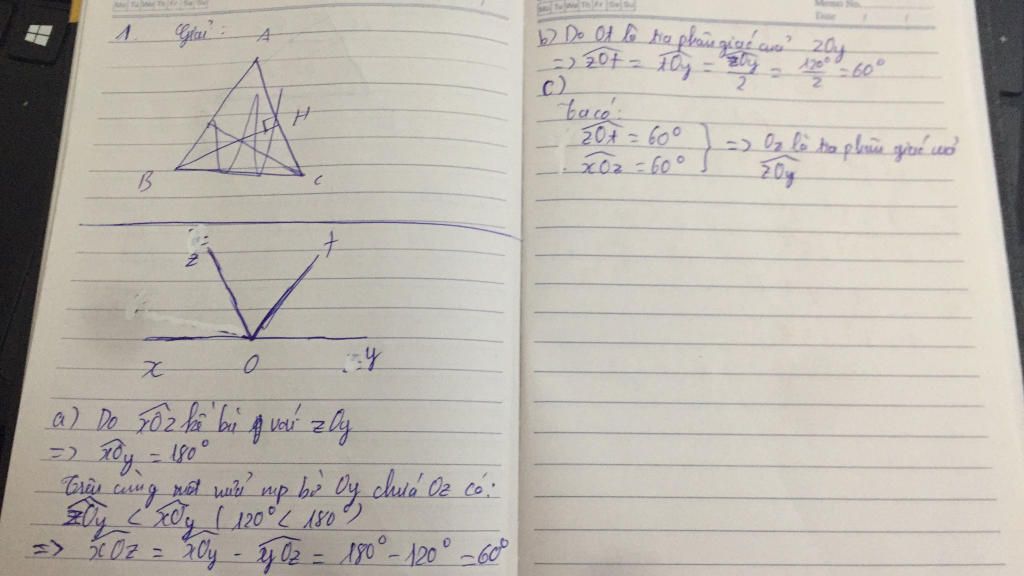 Mo Tu We Th Fr Sa Su
1. Giải:
A
H
B
C
z
t
x
O
y
a) Do xOz kề bù với zOy
=> xOy = 180°
Trên cùng một nửa mp bờ Oy chứa Oz có:
zOy < xOy (120° < 180°)
=> xOz = xOy - yOz = 180° - 120° = 60°
Mo Tu We Th Fr Sa Su
Memo No.
Date / /
b) Do Ot là tia phân giác của zOy
=> zOt = tOy = zOy/2 = 120°/2 = 60°
c)
Ta có:
zOt = 60°
xOz = 60° } => Oz là tia phân giác của
zOy